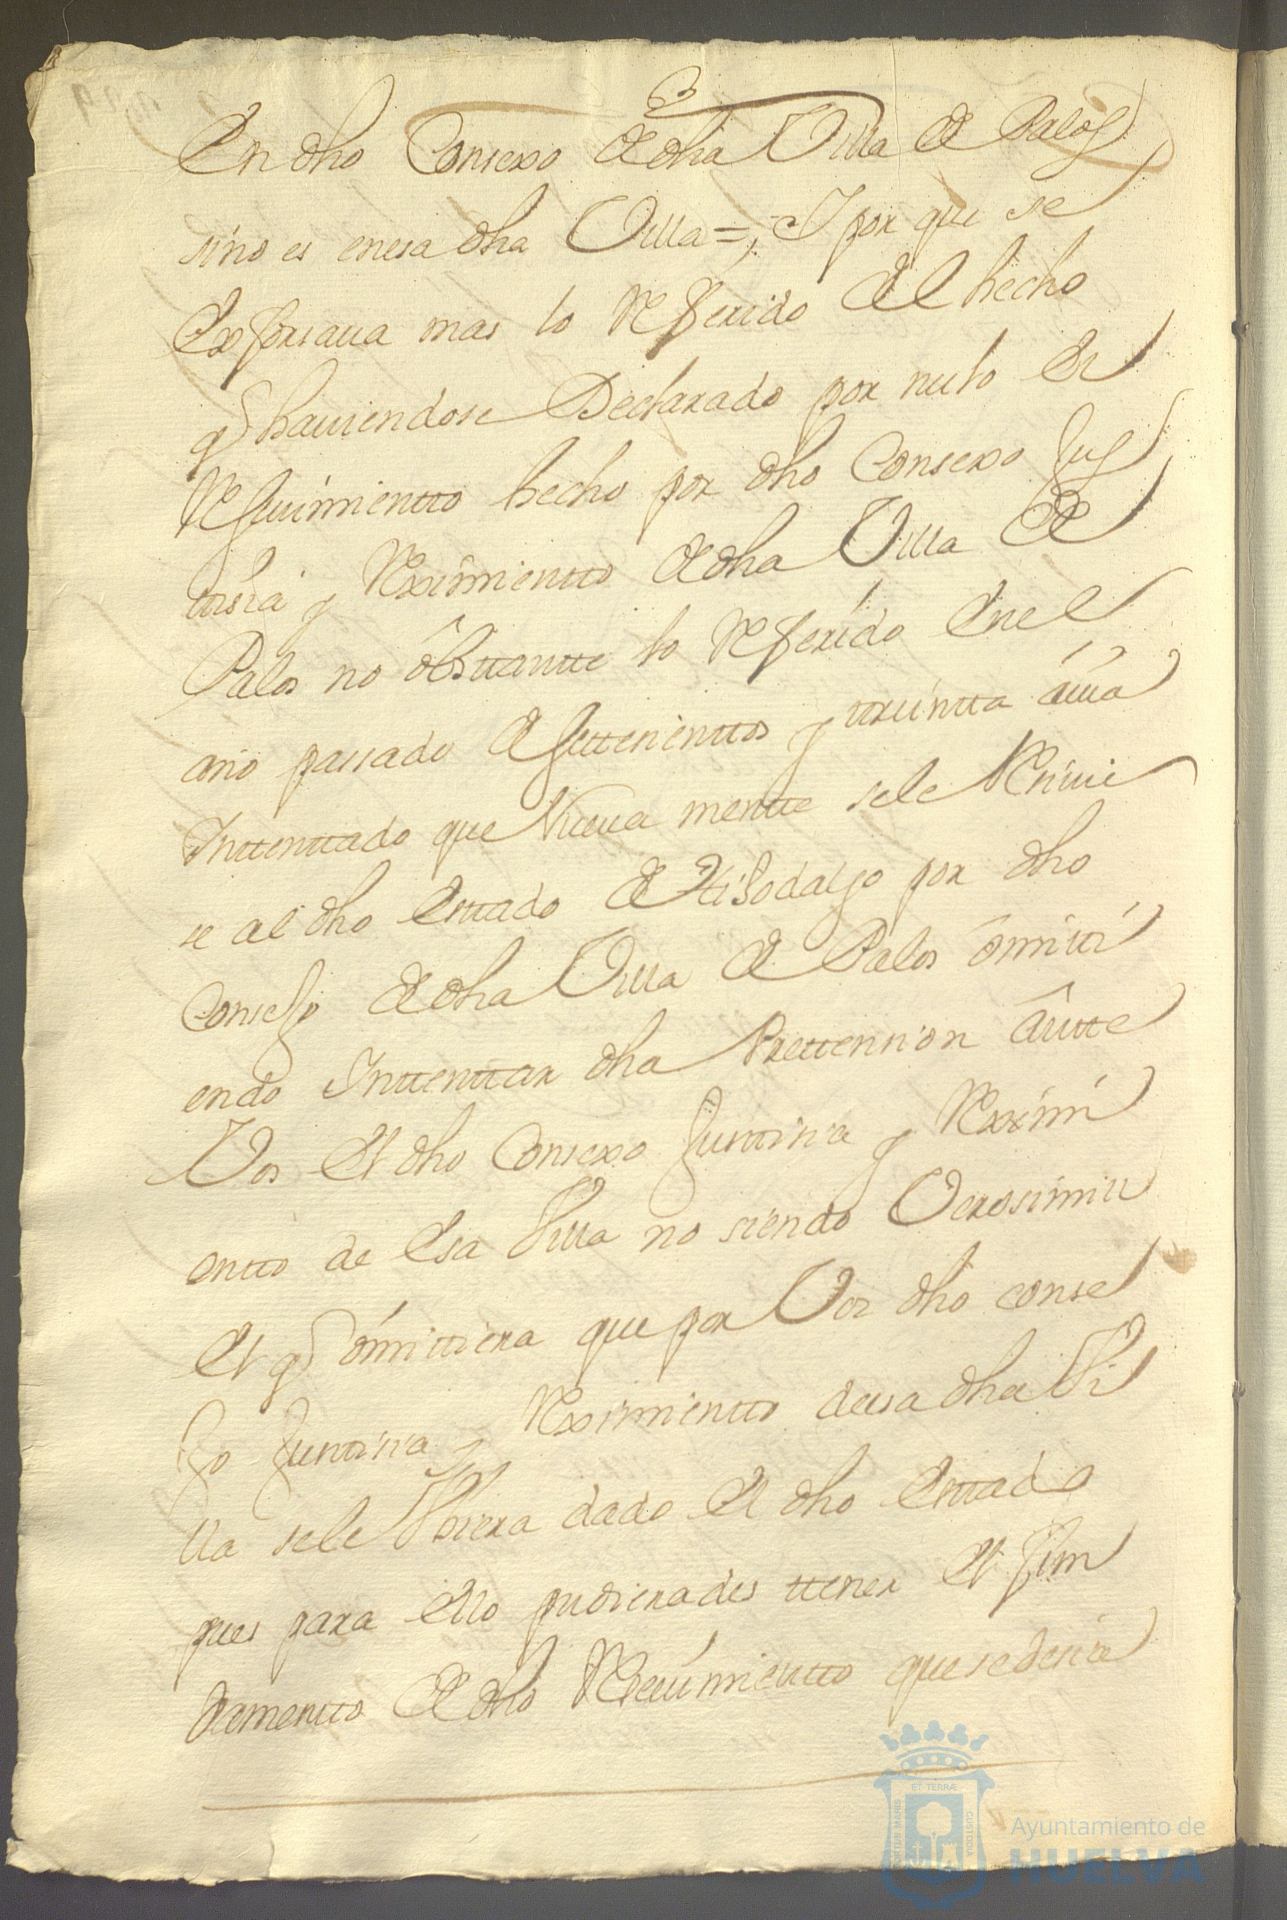 En dho Consexo de dha Villa de Palos
sino es enesa dha Villa =, I por que se
Exforsaua mas lo Referido del hecho
q̃ hauiendose Declarado por nulo el
Resuimientto hecho por dho Consexo Jus
tisia y Reximientto de dha Villa de
Palos no obsttantte lo Referido Enel
año passado de settesienttos y ttreintta auia
Inttenttado que Nueua mentte sele Reciuie
se al dho Esttado de Hisodalgo por dho
Consejo de dha Villa de Palos omitti
endo Inttenttar dha Prettension Antte
Vos El dho Consexo Justtisia y Reximi
entto de Esa Villa no siendo Verosimili
El q̃ omittiera que por Vos dho conse
Jo Justtisia y Reximientto deesa dha Vi
lla sele Vbiera dado El dho Esttado
pues para Ello pudierades ttener El fun
damentto de dho Reciuimientto que se desia
Ayuntamiento de
HUELVA